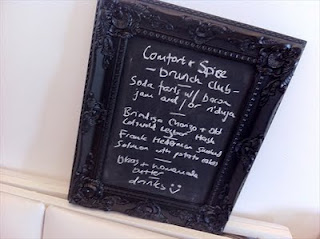 Comfort & Spice
- Brunch Club -
Soda farls w/ Bacon
jam and/or n'duja
Brindisa Chorizo + Old
Cotswold Legbar Hash
Frank Hederman Smoked
Salmon with potato cakes
homemade
butter
drinks